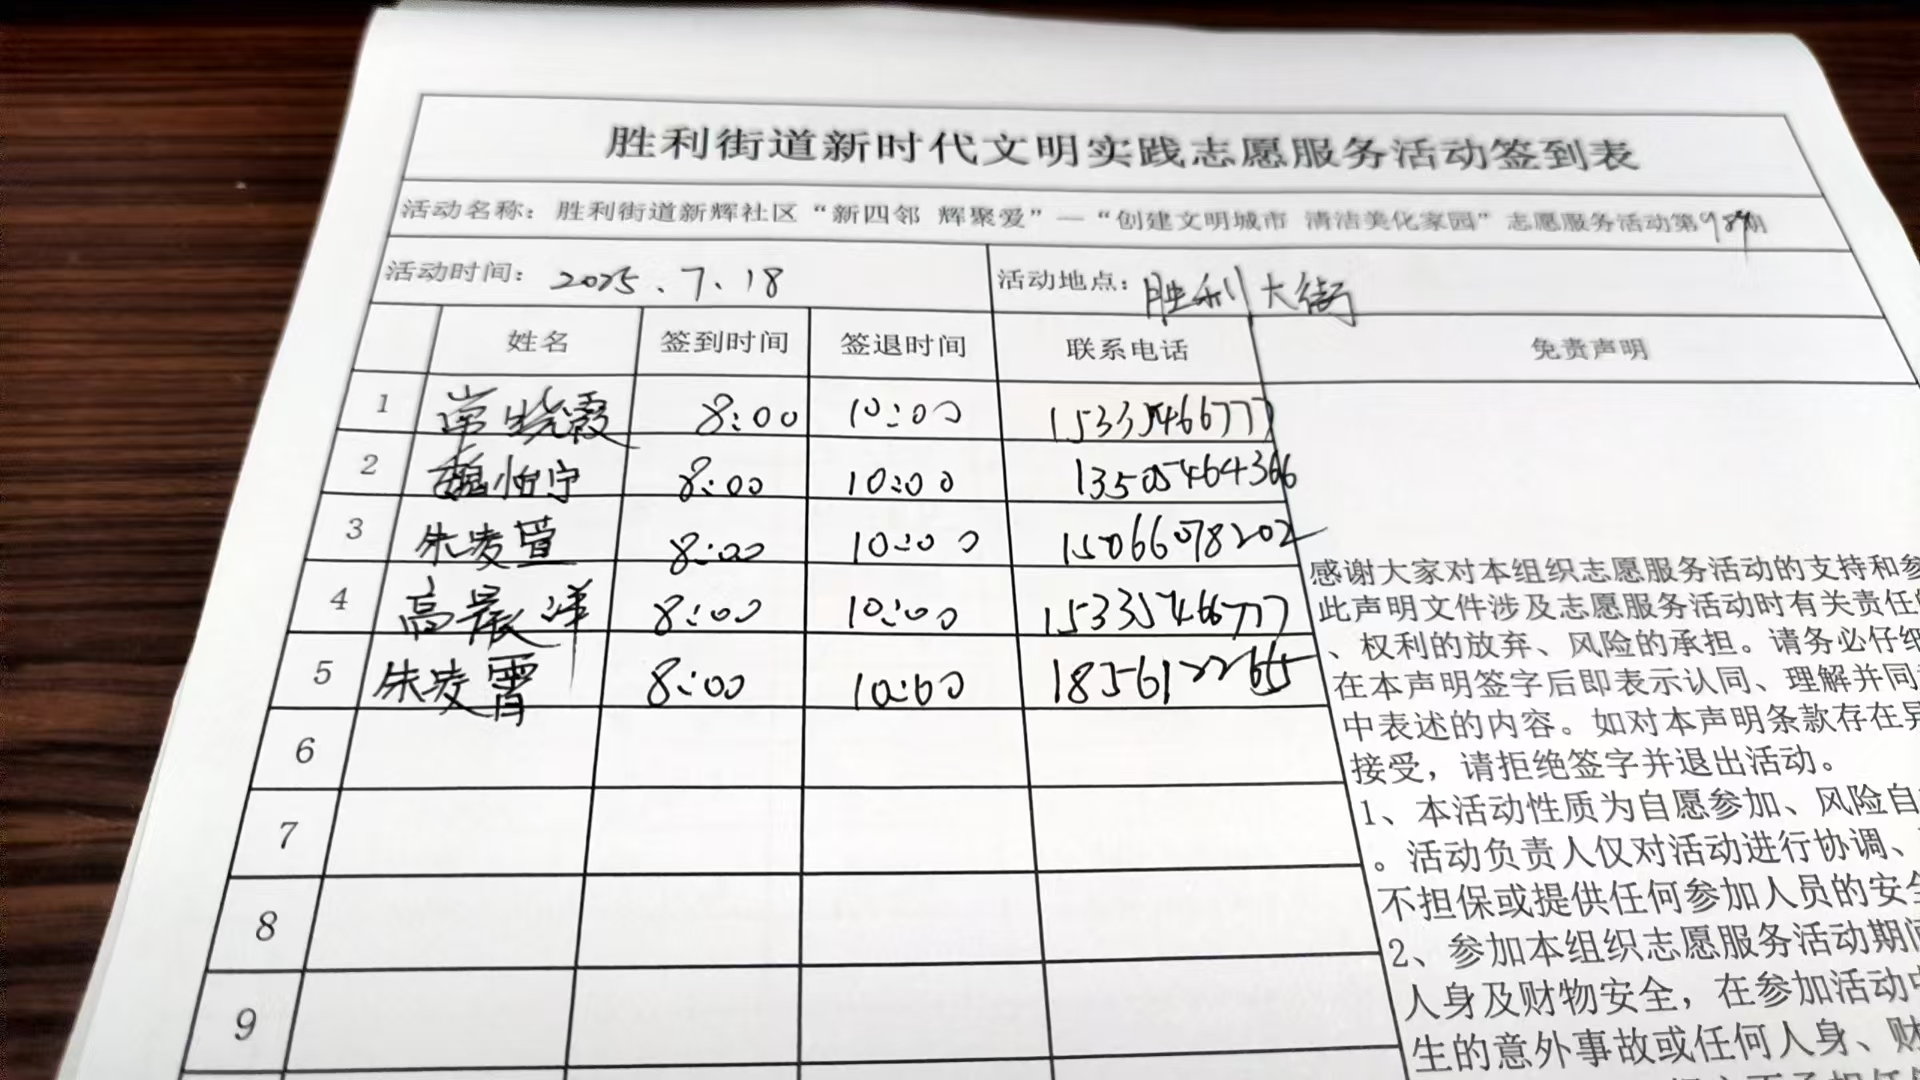 胜利街道新时代文明实践志愿服务活动签到表
活动名称：胜利街道新辉社区“新四邻 辉聚爱”—“创建文明城市 清洁美化家园”志愿服务活动第98期
活动时间：2025.7.18 活动地点：胜利大街
姓名 签到时间 签退时间 联系电话 免责声明
1 常晓霞 8:00 10:00 15335466777
2 魏怡宁 8:00 10:00 13505464366
3 朱凌萱 8:00 10:00 15066078202
4 高晨洋 8:00 10:00 15335466777
5 朱凌霄 8:00 10:00 18561222655
6
7
8
9
感谢大家对本组织志愿服务活动的支持和参
此声明文件涉及志愿服务活动时有关责任的
、权利的放弃、风险的承担。请务必仔细
在本声明签字后即表示认同、理解并同
中表述的内容。如对本声明条款存在异
接受，请拒绝签字并退出活动。
1、本活动性质为自愿参加、风险自
。活动负责人仅对活动进行协调、
不担保或提供任何参加人员的安全
2、参加本组织志愿服务活动期间
人身及财物安全，在参加活动中
生的意外事故或任何人身、财